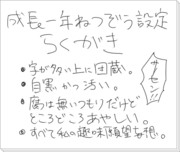 成長一年ねつぞう設定
らくがき
・字が多い上に団蔵。
・目黒かっ活い。
・腐は無いつもりだけど
ところどころあやしい。
・すべて私の趣味願望妄想。
サーセン!!